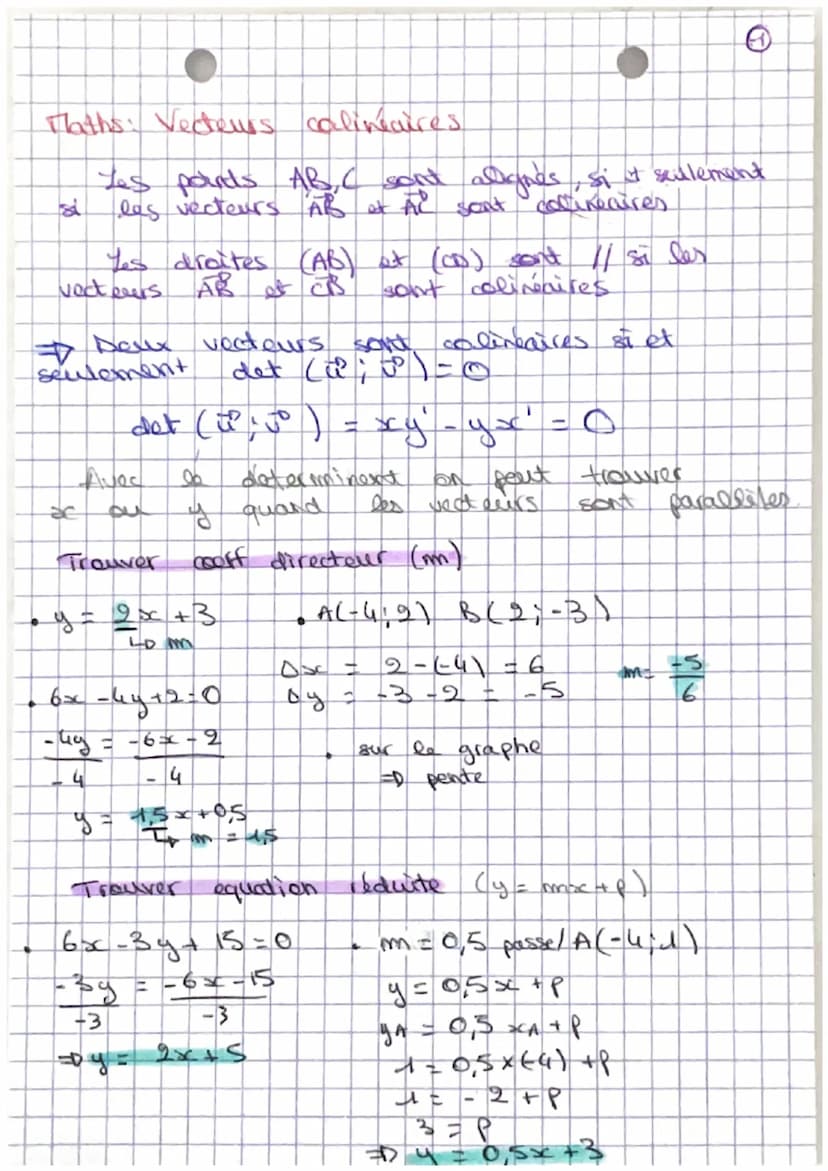 1
Maths: Vecteurs calinéaires
Les points AB,C sont alignés, si + seulement
si les vecteurs AB et AC sont colinéaires
Les droites (AB) et (CD) sont // si les
vecteurs AB et CB sont colinéaires
⇒ Deux vecteurs sont colinéaires si et
seulement det (u ; v) = 0
det (u ; v) = xy' - yx' = 0
Avec le déterminent on peut trouver
x ou y quand les vecteurs sont parallèles.
Trouver coeff directeur (m)
• y = 2x + 3
↳ m
• A(-4;2) B(2;-3)
Δx = 2-(-4) = 6
Δy = -3 -2 = -5
m = -5/6
• 6x -4y+2=0
-4y/-4 = -6x-2/-4
y = 1,5x+0,5
↳ m = 1,5
• sur le graphe
⇒ pente
Trouver equation réduite (y = mx + p)
• 6x -3y + 15 = 0
-3y/-3 = -6x-15/-3
⇒ y = 2x + 5
• m = 0,5 passe/ A(-4;1)
y = 0,5x + p
yA = 0,5 xA + p
1 = 0,5x(-4) + p
1 = -2 + p
3 = p
⇒ y = 0,5x + 3